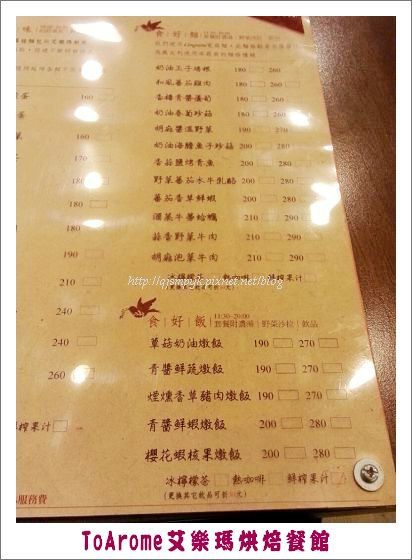 食好麵
奶油玉子培根 180 260
和風番茄雞肉 180 260
香樁青醬蘆筍 190 270
奶油卷菊珍菇 190 270
胡麻醬溫野菜 190 270
奶油海膽魚子珍菇 200 280
香蒜鹽烤青魚 200 280
野菜番茄水牛乳酪 200 280
番茄香草鮮蝦 200 280
酒蒸牛蒡蛤蠣 210 290
蒜香野菜牛肉 210 290
胡麻泡菜牛肉 210 290
冰檸檬茶 熱咖啡 鮮榨果汁
http://qjsmpyjk.pixnet.net/blog
食好飯 11:30-20:00
套餐附濃湯 野菜沙拉 飲品
蕈菇奶油燉飯 190 270
青醬鮮蔬燉飯 190 270
煙燻香草豬肉燉飯 190 270
青醬鮮蝦燉飯 200 280
櫻花蝦核果燉飯 200 280
冰檸檬茶 熱咖啡 鮮榨果汁
味
蛋
蛋
180
160
170
160
190
210
240
210
240
260
鮮榨果汁
服務費
ToArome艾樂瑪烘焙餐館